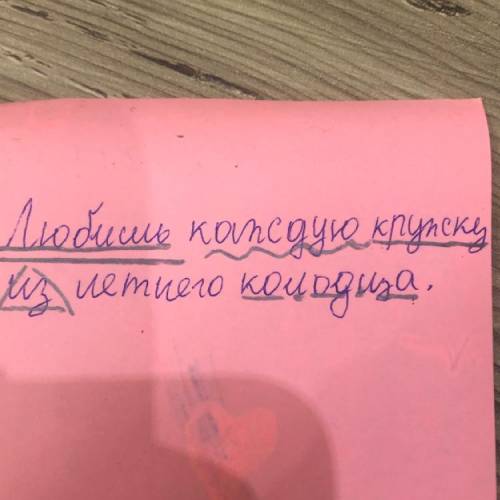 Любишь каждую кружку
из летнего колодца.